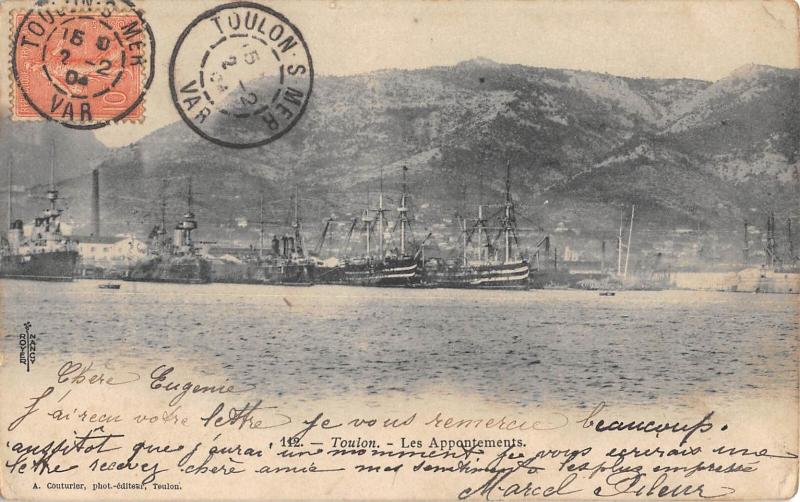 TOULON-S-MER
15
2 - 2
04
VAR
10
TOULON-S-MER
15
2 - 2
VAR
ROYER
NANCY
Chere Eugenie
J'ai recu votre lettre je vous remercie beaucoup.
112. — Toulon. - Les Appontements.
aussitôt que j'aurai un momment je vous ecrirais une
lettre recevez chere amie mes sentiments les plus empressé
A. Couturier, phot.-éditeur, Toulon.
Marcel